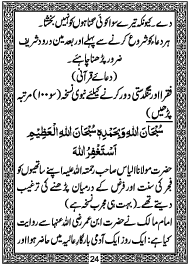 دے۔ کیونکہ تیرے سوا کوئی گناہوں کو نہیں بخشتا۔
ہر دعا کو شروع کرنے سے پہلے اور بعد میں درود شریف
ضرور پڑھنا چاہیئے۔
(دعائے قرآنی)
فقر اور تنگدستی دور کرنے کیلئے نبوی نسخہ (سو ۱۰۰) مرتبہ
پڑھیں)
سُبْحَانَ اللهِ وَبِحَمْدِهٖ سُبْحَانَ اللهِ الْعَظِيْمِ
اَسْتَغْفِرُ اللهَ
حضرت مولانا الیاس صاحب رحمتہ اللہ علیہ اپنے ساتھیوں کو
فجر کی سنت اور فرض کے درمیان پڑھنے کی ترغیب
دیتے تھے۔ (بہت ہی مجرب نسخہ ہے)
امام مالک نے حضرت ابن عمر رضی اللہ عنہما سے روایت
کیا ہے: ایک روز ایک آدمی بارگاہ عالیہ میں حاضر ہوا اور
24